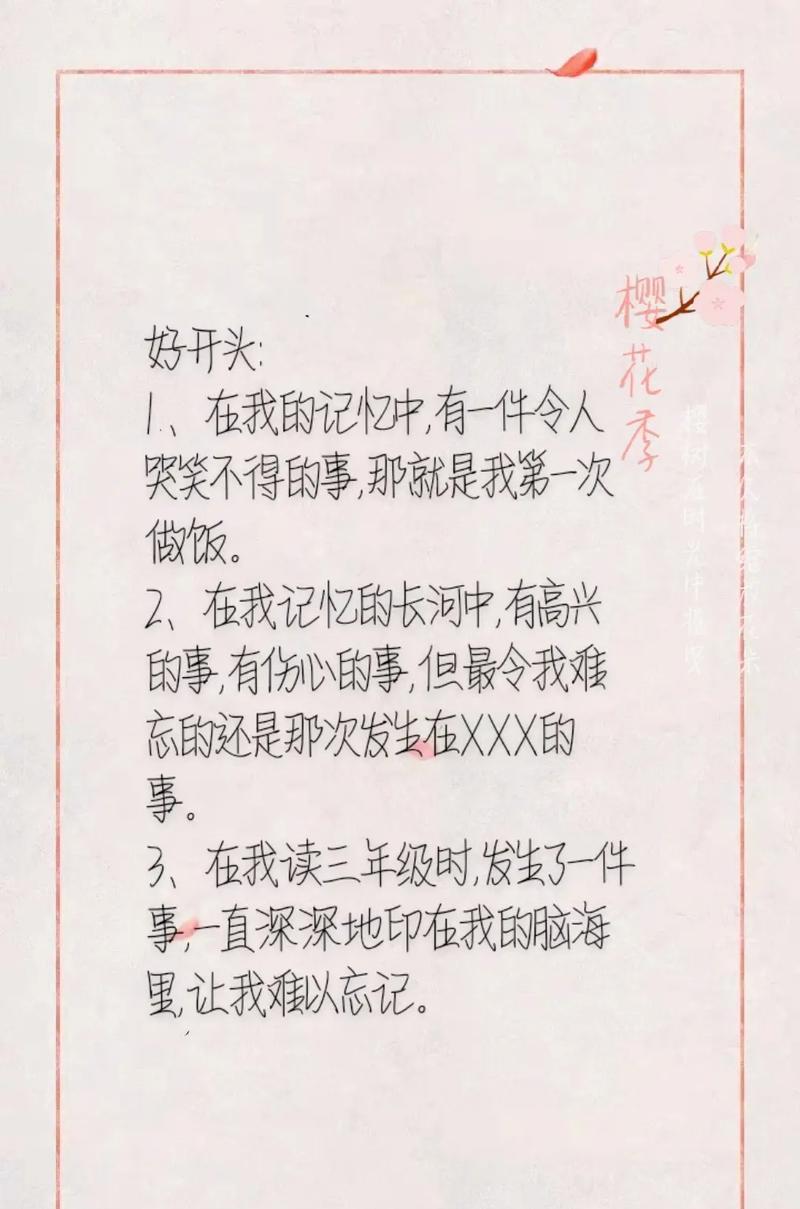 好开头:
1、在我的记忆中,有一件令人
哭笑不得的事,那就是我第一次
做饭。
2、在我记忆的长河中,有高兴
的事,有伤心的事,但最令我难
忘的还是那次发生在XXX的
事。
3、在我读三年级时,发生了一件
事,一直深深地印在我的脑海
里,让我难以忘记。
樱花季